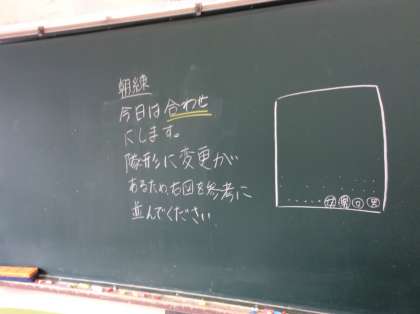 朝練
今日は合わせ
にします。
隊形に変更が
あるため、右図を参考に
並んでください